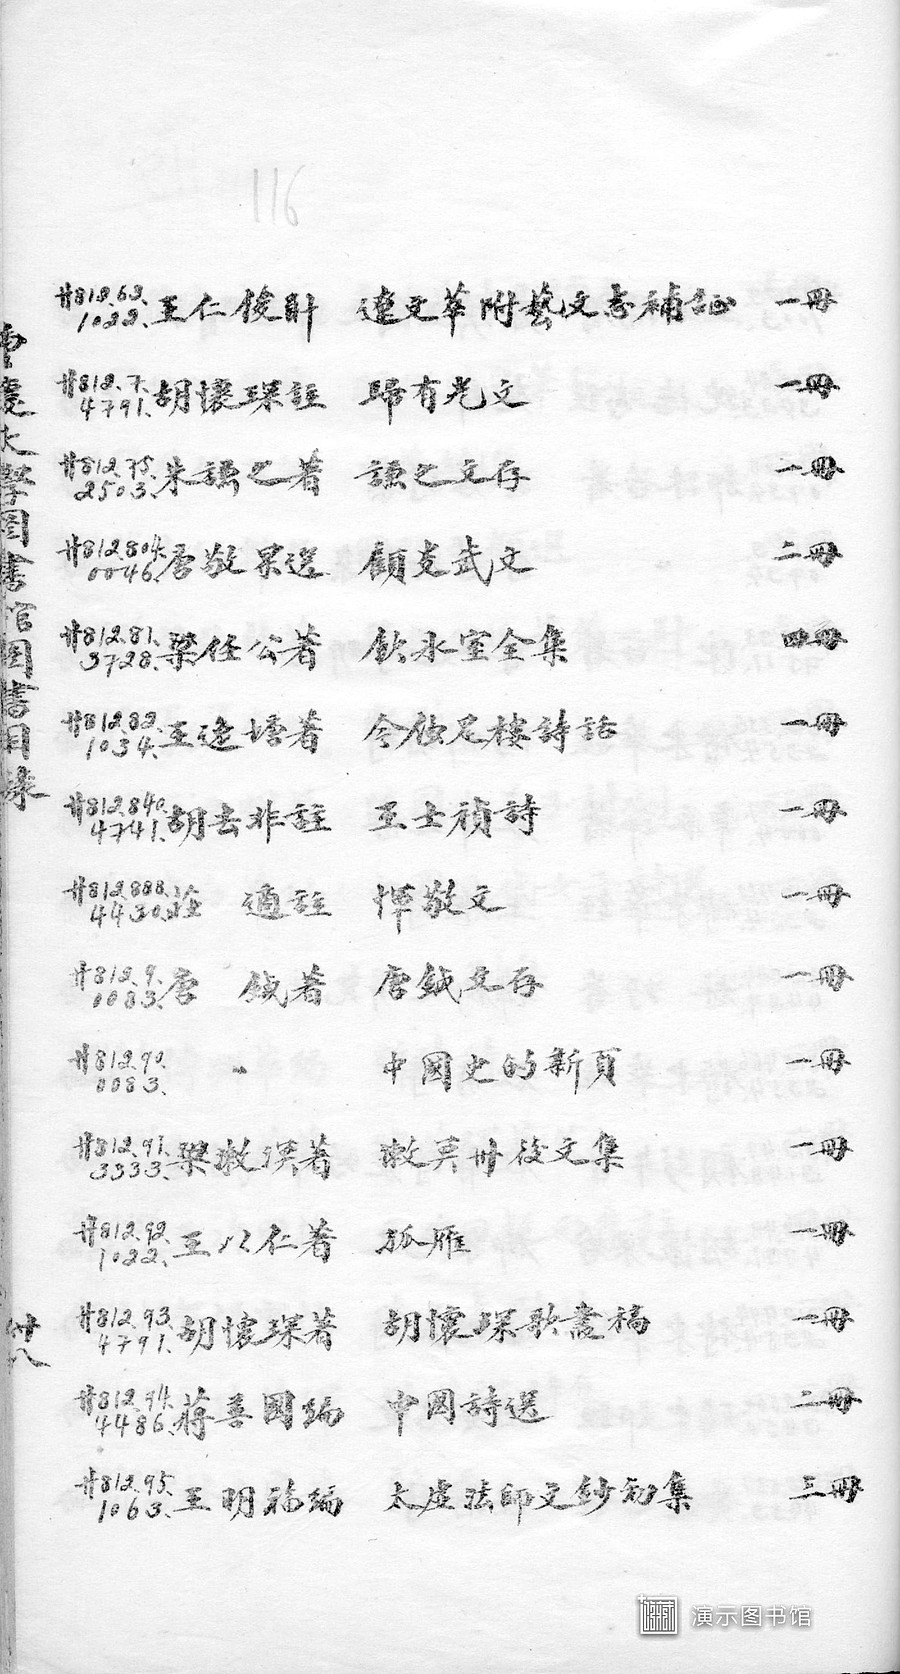 116
廿812.63. 王仁俊輯 遼文萃附藝文志補証 一冊
1022.
廿812.7. 胡懷琛註 歸有光文 一冊
4791.
廿812.75. 朱謙之著 謙之文存 一冊
2503.
廿812.804. 唐敬杲選 顧炎武文 二冊
0046.
廿812.81. 梁任公著 飲冰室全集 四冊
3728.
廿812.82. 王逸塘著 今傳是樓詩話 一冊
1034.
廿812.840. 胡去非註 王士禎詩 一冊
4741.
廿812.888. 莊適註 惲敬文 一冊
4430.
廿812.9. 唐鉞著 唐鉞文存 一冊
0083.
廿812.90. 〃 中國史的新頁 一冊
0083.
廿812.91. 梁漱溟著 漱溟卅後文集 一冊
3333.
廿812.92. 王以仁著 孤雁 一冊
1022.
廿812.93. 胡懷琛著 胡懷琛歌叢稿 一冊
4791.
廿812.94. 蔣善國編 中國詩選 二冊
4486.
廿812.95. 王明福編 太虛法師文鈔初集 三冊
1063.
重慶大學圖書館圖書目錄
廿八
演示图书馆